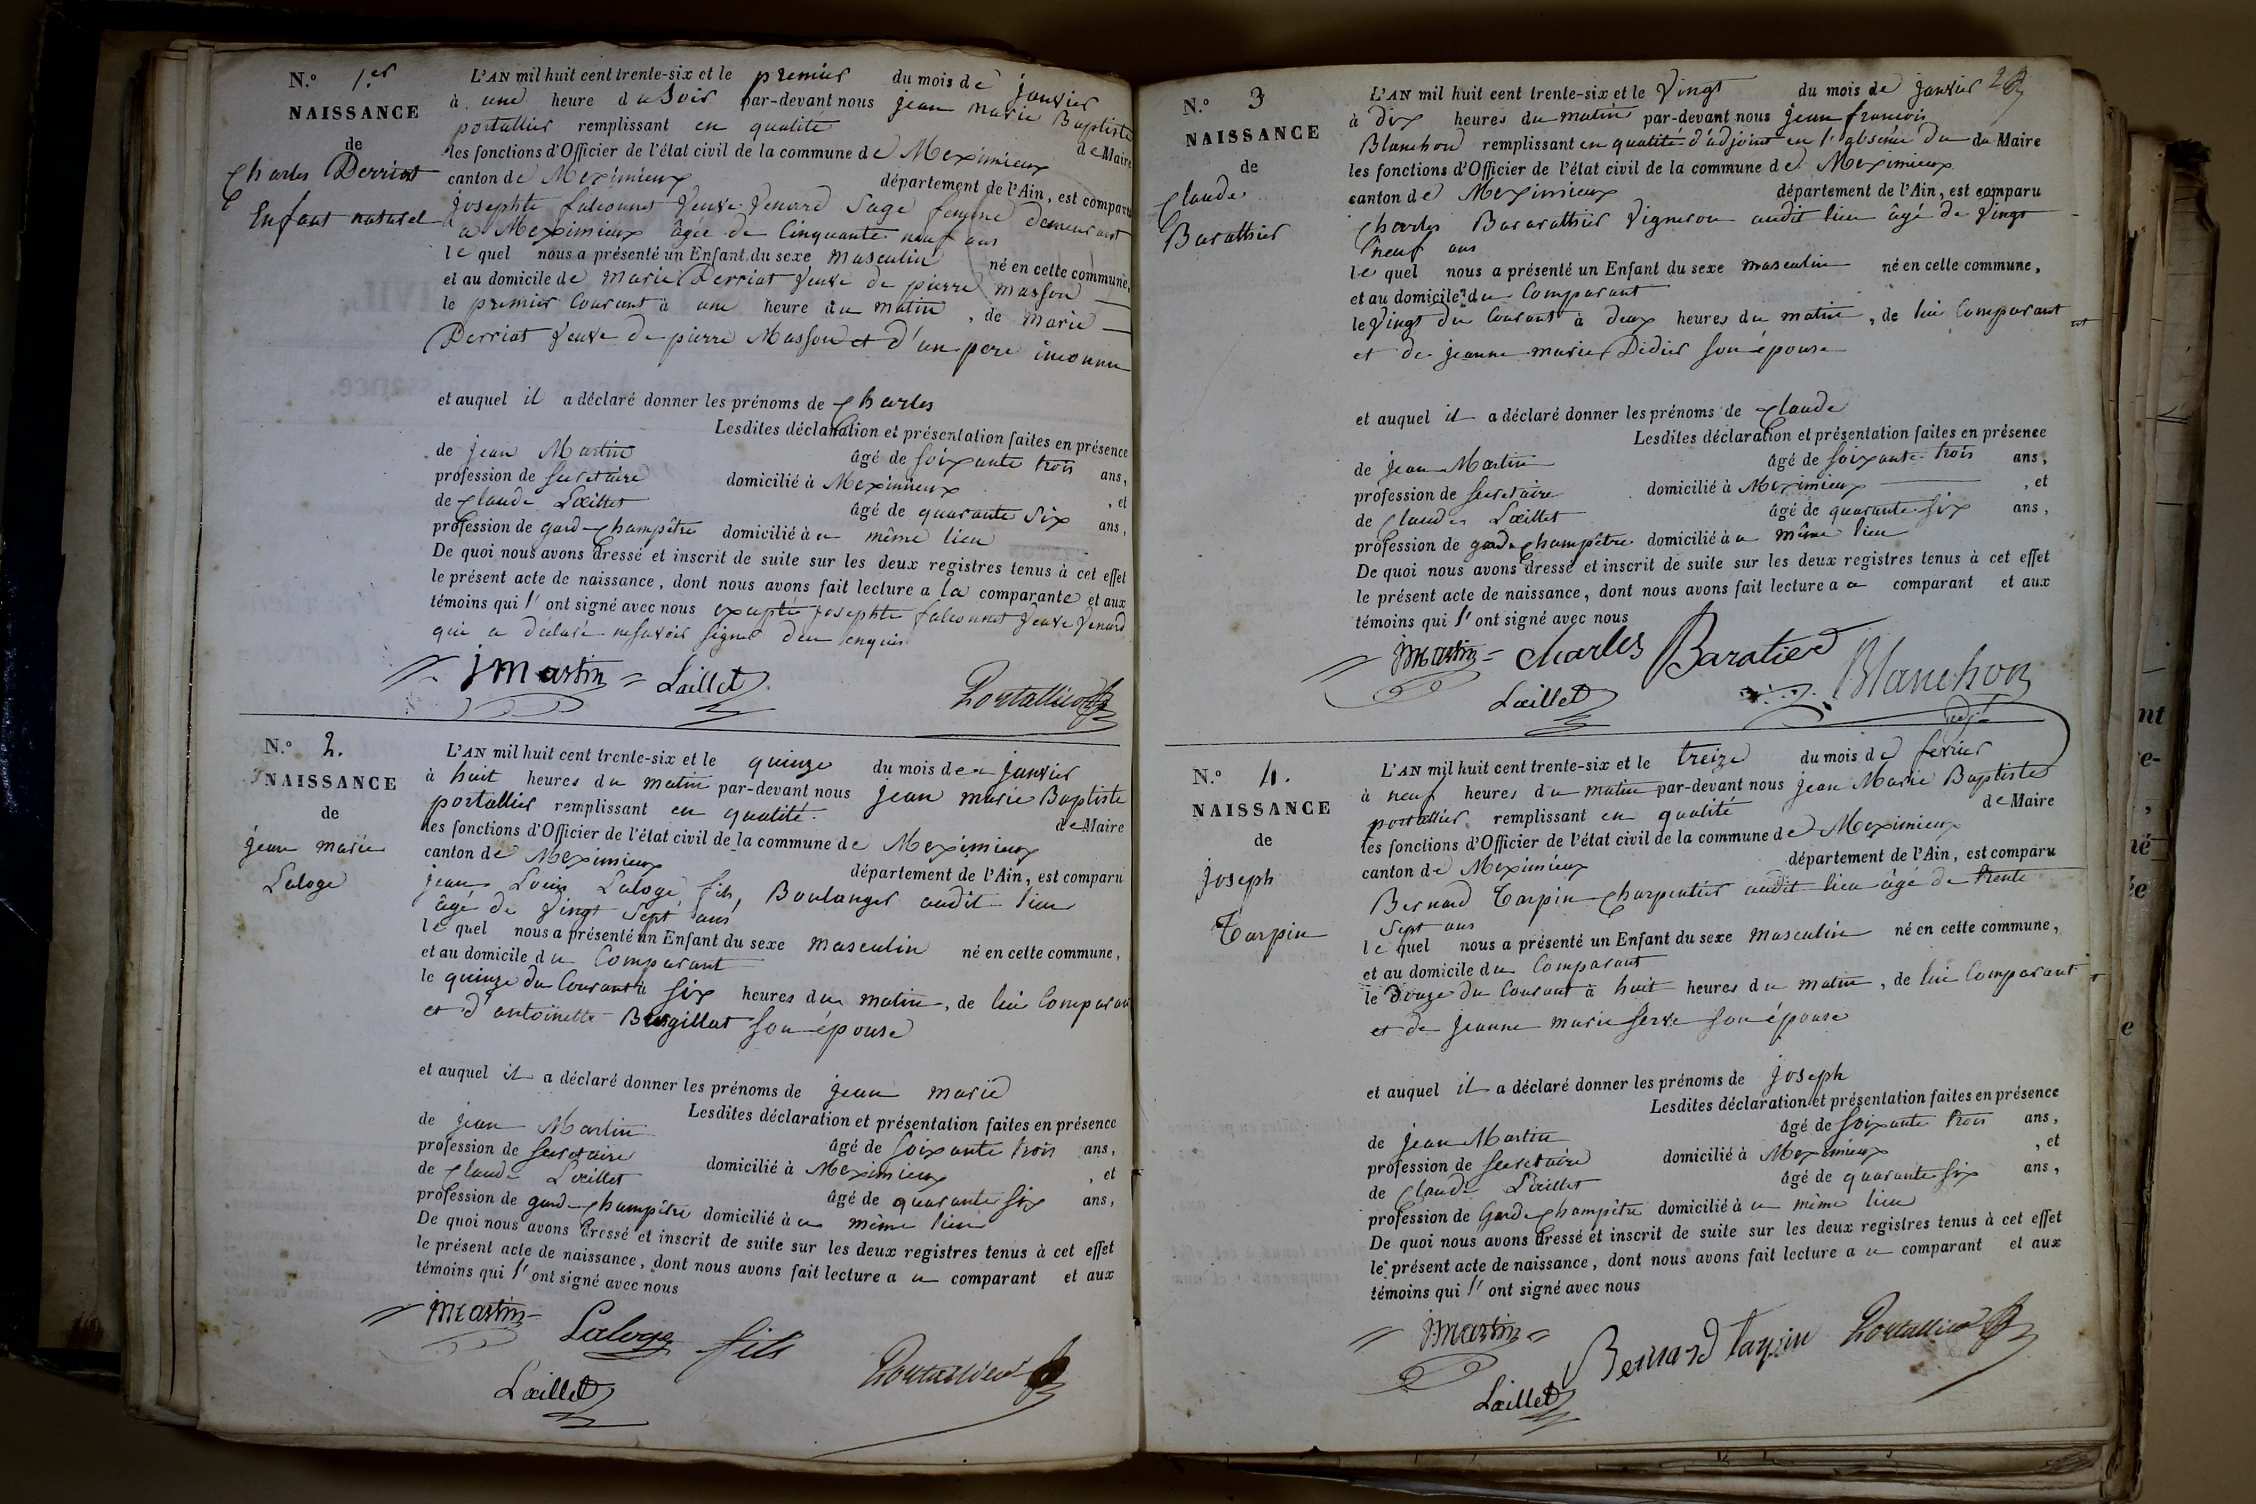 N.° 1.er
NAISSANCE
de
Charles Derriat
Enfant naturel
L'AN mil huit cent trente-six et le premier du mois de janvier
à une heure du Soir par-devant nous jean marie Baptiste
portallier remplissant en qualité de Maire
les fonctions d'Officier de l'état civil de la commune de Meximieux
canton de Meximieux département de l'Ain, est comparu
Josephte falconnet Veuve Venard Sage femme demeurant
a Meximieux agée de Cinquante neuf ans
le quel nous a présenté un Enfant du sexe masculin né en cette commune,
et au domicile de Marie Derriat Veuve de pierre Masson
le premier Courant à une heure du matin, de Marie
Derriat Veuve de pierre Masson et d'un pere inconnu
et auquel il a déclaré donner les prénoms de Charles
Lesdites déclaration et présentation faites en présence
de jean Martin âgé de soixante trois ans,
profession de secretaire domicilié à Meximieux, et
de Claude Lœillet âgé de quarante six ans,
profession de gard-Champêtre domicilié à u même lieu
De quoi nous avons dressé et inscrit de suite sur les deux registres tenus à cet effet
le présent acte de naissance, dont nous avons fait lecture a la comparante et aux
témoins qui l' ont signé avec nous excepté josephte falconnet Veuve Venard
qui a déclaré ne savoir signer d'eu enquis
jmartin Lœillet Portallier
N.° 2.
NAISSANCE
de
jean marie
Laloge
L'AN mil huit cent trente-six et le quinze du mois de janvier
à huit heures du matin par-devant nous jean marie Baptiste
portallier remplissant en qualité de Maire
les fonctions d'Officier de l'état civil de la commune de Meximieux
canton de Meximieux département de l'Ain, est comparu
jean Louis Laloge fils, Boulanger audit lieu
âgé de Vingt Sept ans
le quel nous a présenté un Enfant du sexe masculin né en cette commune,
et au domicile du Comparant
le quinze du Courant à six heures du matin, de lui Comparant
et d'antoinette Burgillat son épouse
et auquel il a déclaré donner les prénoms de jean marie
Lesdites déclaration et présentation faites en présence
de jean Martin âgé de soixante trois ans,
profession de secretaire domicilié à Meximieux, et
de Claude Lœillet âgé de quarante six ans,
profession de gard-Champêtre domicilié à u même lieu
De quoi nous avons dressé et inscrit de suite sur les deux registres tenus à cet effet
le présent acte de naissance, dont nous avons fait lecture a u comparant et aux
témoins qui l' ont signé avec nous
jmartin Laloge fils
Lœillet Portallier
N.° 3
NAISSANCE
de
Claude
Barathier
L'AN mil huit cent trente-six et le Vingt du mois de janvier
à dix heures du matin par-devant nous jean francois
Blanchon remplissant en qualité d'adjoint en l'absence du du Maire
les fonctions d'Officier de l'état civil de la commune de Meximieux
canton de Meximieux département de l'Ain, est comparu
Charles Bararathier Vigneron audit lieu âgé de Vingt
neuf ans
le quel nous a présenté un Enfant du sexe masculin né en cette commune,
et au domicile du Comparant
le Vingt du Courant à deux heures du matin, de lui Comparant
et de jeanne marie Didier son épouse
et auquel il a déclaré donner les prénoms de Claude
Lesdites déclaration et présentation faites en présence
de jean Martin âgé de soixante trois ans,
profession de secretaire domicilié à Meximieux, et
de Claude Lœillet âgé de quarante six ans,
profession de gard-Champêtre domicilié à u même lieu
De quoi nous avons dressé et inscrit de suite sur les deux registres tenus à cet effet
le présent acte de naissance, dont nous avons fait lecture a u comparant et aux
témoins qui l' ont signé avec nous
jmartin Charles Baratier
Lœillet Blanchon
adjt
N.° 4.
NAISSANCE
de
joseph
Tarpin
L'AN mil huit cent trente-six et le treize du mois de fevrier
à neuf heures du matin par-devant nous jean Marie Baptiste
portallier remplissant en qualité de Maire
les fonctions d'Officier de l'état civil de la commune de Meximieux
canton de Meximieux département de l'Ain, est comparu
Bernard Tarpin Charpentier audit lieu âgé de trente
Sept ans
le quel nous a présenté un Enfant du sexe masculin né en cette commune,
et au domicile du Comparant
le douze du Courant à huit heures du matin, de lui Comparant
et de jeanne marie Serve son épouse
et auquel il a déclaré donner les prénoms de joseph
Lesdites déclaration et présentation faites en présence
de jean Martin âgé de soixante trois ans,
profession de secretaire domicilié à Meximieux, et
de Claude Lœillet âgé de quarante six ans,
profession de Gard-Champêtre domicilié à u même lieu
De quoi nous avons dressé et inscrit de suite sur les deux registres tenus à cet effet
le présent acte de naissance, dont nous avons fait lecture a u comparant et aux
témoins qui l' ont signé avec nous
jmartin Bernard Tarpin Portallier
Lœillet